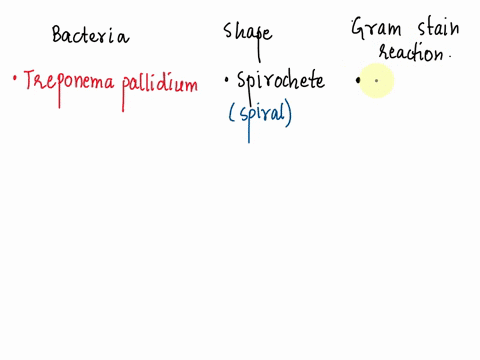 Bacteria
Shape
Gram stain
reaction.
• Treponema pallidium
• Spirochete
(spiral)
•